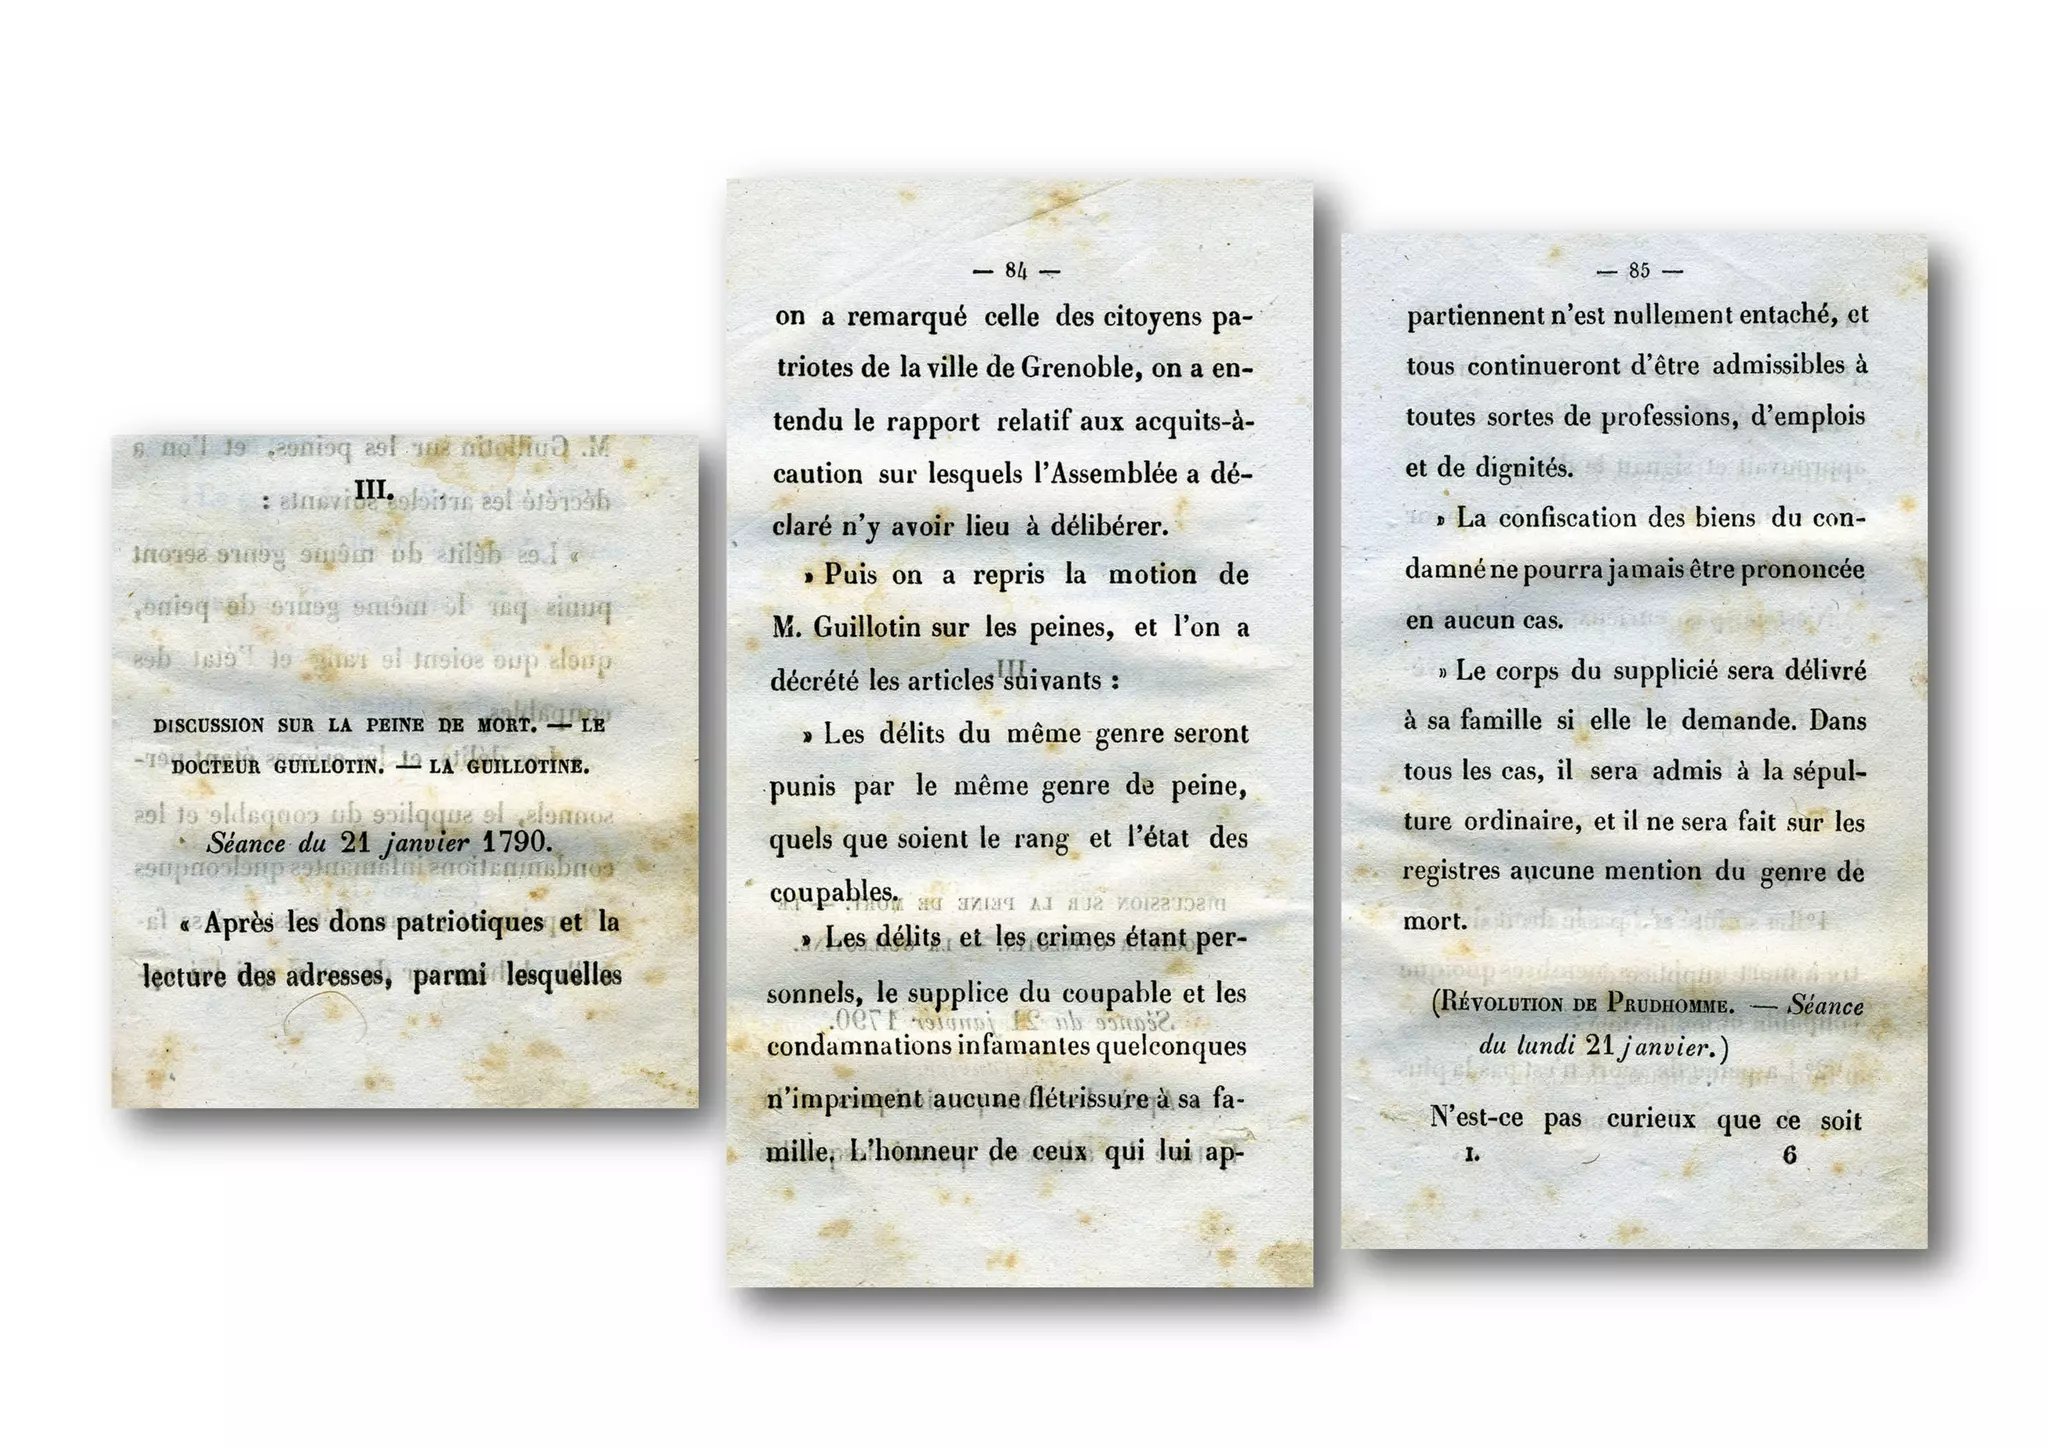 III.
DISCUSSION SUR LA PEINE DE MORT. — LE
DOCTEUR GUILLOTIN. — LA GUILLOTINE.
Séance du 21 janvier 1790.
« Après les dons patriotiques et la
lecture des adresses, parmi lesquelles
— 84 —
on a remarqué celle des citoyens pa-
triotes de la ville de Grenoble, on a en-
tendu le rapport relatif aux acquits-à-
caution sur lesquels l'Assemblée a dé-
claré n'y avoir lieu à délibérer.
» Puis on a repris la motion de
M. Guillotin sur les peines, et l'on a
décrété les articles suivants :
» Les délits du même genre seront
punis par le même genre de peine,
quels que soient le rang et l'état des
coupables.
» Les délits et les crimes étant per-
sonnels, le supplice du coupable et les
condamnations infamantes quelconques
n'impriment aucune flétrissure à sa fa-
mille. L'honneur de ceux qui lui ap-
— 85 —
partiennent n'est nullement entaché, et
tous continueront d'être admissibles à
toutes sortes de professions, d'emplois
et de dignités.
» La confiscation des biens du con-
damné ne pourra jamais être prononcée
en aucun cas.
» Le corps du supplicié sera délivré
à sa famille si elle le demande. Dans
tous les cas, il sera admis à la sépul-
ture ordinaire, et il ne sera fait sur les
registres aucune mention du genre de
mort.
(RÉVOLUTION DE PRUDHOMME. — Séance
du lundi 21 janvier.)
N'est-ce pas curieux que ce soit
I. 6